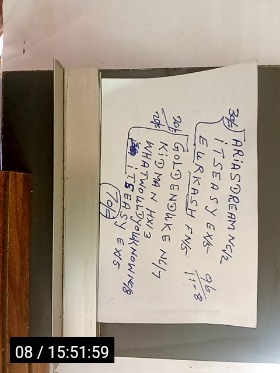 30£ ARIASDREAM NC/2
ITSEASY EXS
EURKASH FNS
96
11-8
20£ GOLDENDUKE NC/7
20£ KIDMAN HX/3
WHATWOULDYOUKNOW NE/8
ITSEASY EX/S
70£
08 / 15:51:59